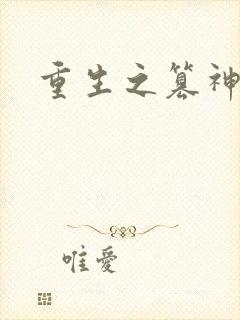 重生之篡神
唯愛